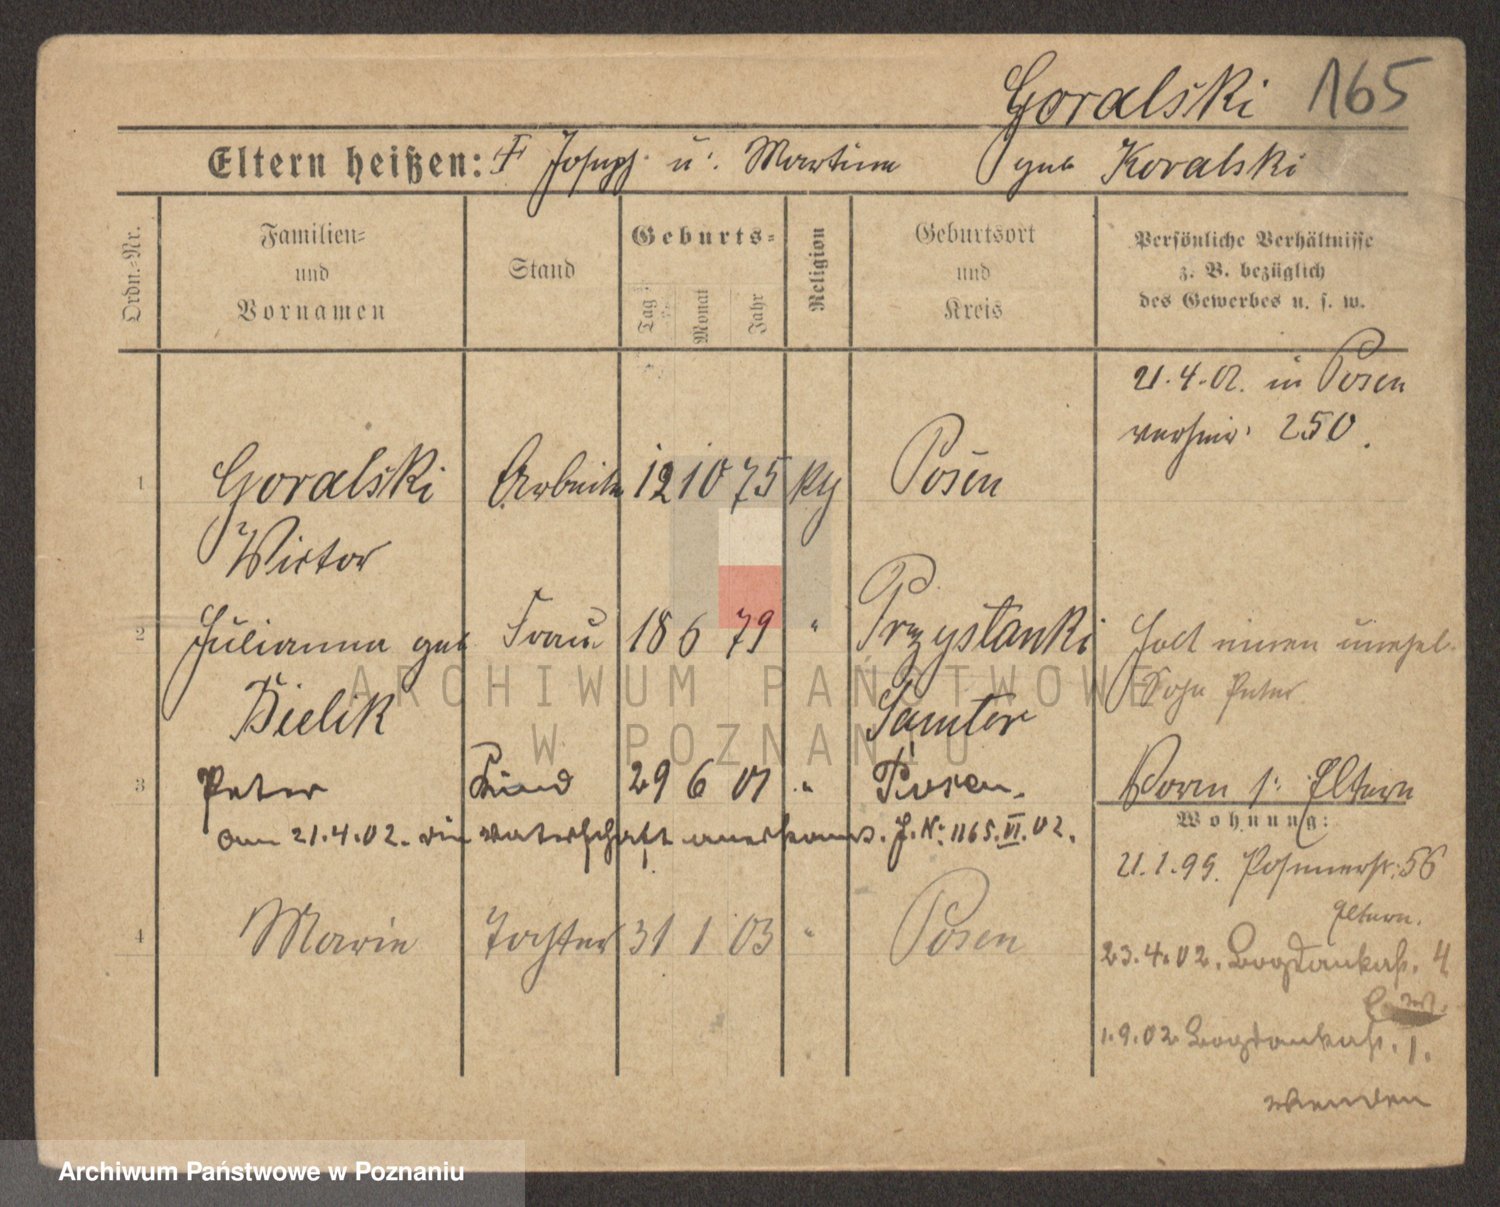 Goralski 165
Eltern heißen: Joseph u. Martina geb Koralski
Ordn.-Nr.
Familien-
und
Vornamen
Stand
Geburts-
Tag
Monat
Jahr
Religion
Geburtsort
und
Kreis
Persönliche Verhältnisse
z. B. bezüglich
des Gewerbes u. s. w.
21.4.02. in Posen
verheir. 250.
1 Goralski Arbeiter 12 10 75 Posen
Victor
2 Julianna geb Frau 18 6 79 " Przystanki
Bielik Samter
Hat einen unehel.
Sohn Peter
3 Peter Kind 29 6 01 " Posen.
am 21.4.02. die Vaterschaft anerkannt. J.N: 1165.VI.02.
4 Marie Tochter 31 1 03 " Posen
Vorm 1: Eltern
Wohnung:
21.1.99. Posenerstr. 56
Eltern.
23.4.02. Bogdankastr. 4
1.9.02 Bogdankastr. 1.
wenden
ARCHIWUM PAŃSTWOWE
W POZNANIU
Archiwum Państwowe w Poznaniu